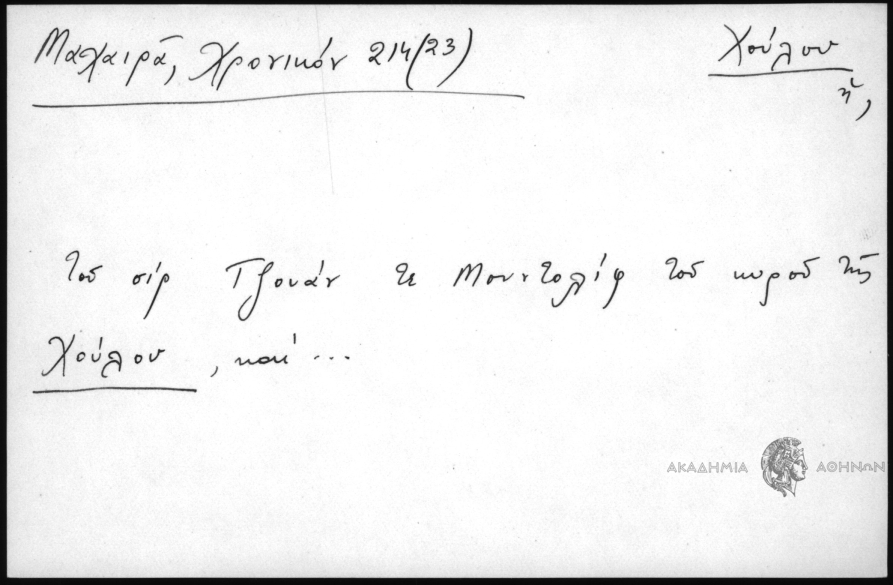 Μαχαιρᾶ, Χρονικόν 214(23)
Χούλου
ἡ,
τοῦ σίρ Τζουάν τε Μουντολίφ τοῦ κυροῦ τῆς
Χούλου, καί ...
ΑΚΑΔΗΜΙΑ ΑΘΗΝΩΝ